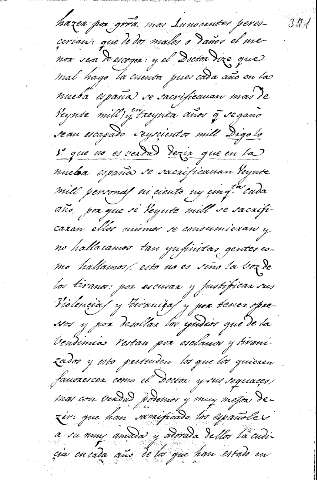 321
hazen por guerra mas Innocentes peres-
cerian: que de dos males o daños el me-
nor sea de escoger: y el Doctor dize que
mal hago la cuenta pues cada año en la
nueba españa se sacrificauan mas de
veynte mill y en treynta años q se gano
sean escapado seyscientos mill. Digo lo
1º que no es verdad dezir que en la
nueba españa se sacrificauan veynte
mill personas ni ciento ny cinqta cada
año porque si veynte mill se sacrifi-
caran ellos mismos se consumieran y
no hallaramos tan ynfinitas gentes co-
mo hallamos, esto no es sino la voz de
los tiranos: por escusar y justificar sus
violencias y tiranias y por tener opre-
sos y por desollar los yndios que de la
vendimias restan por esclauos y tirani-
zados y esto pretenden los que los quieren
fauorescer como el Doctor y sus sequaces
mas con verdad podemos y muy mejor de-
zir: que han sacrificado los españoles
a su muy amada y adorada dellos la cudi-
cia en cada año de los que han estado en